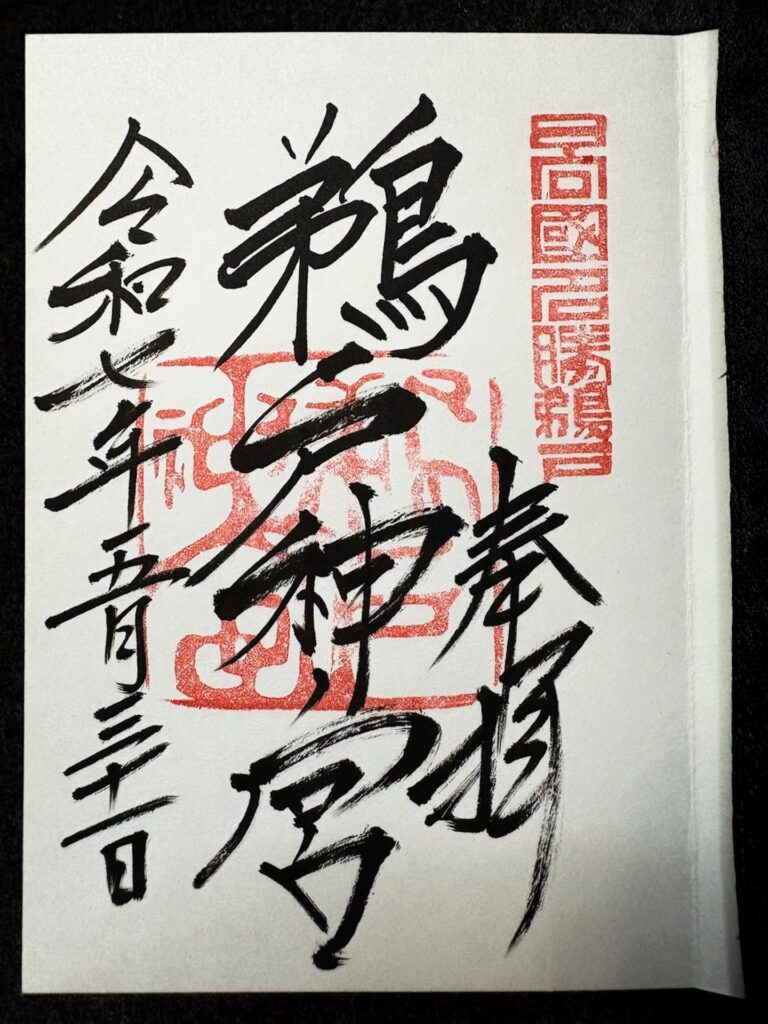 日向國名勝鵜戸
奉拝
鵜戸神宮
令和七年五月三十一日